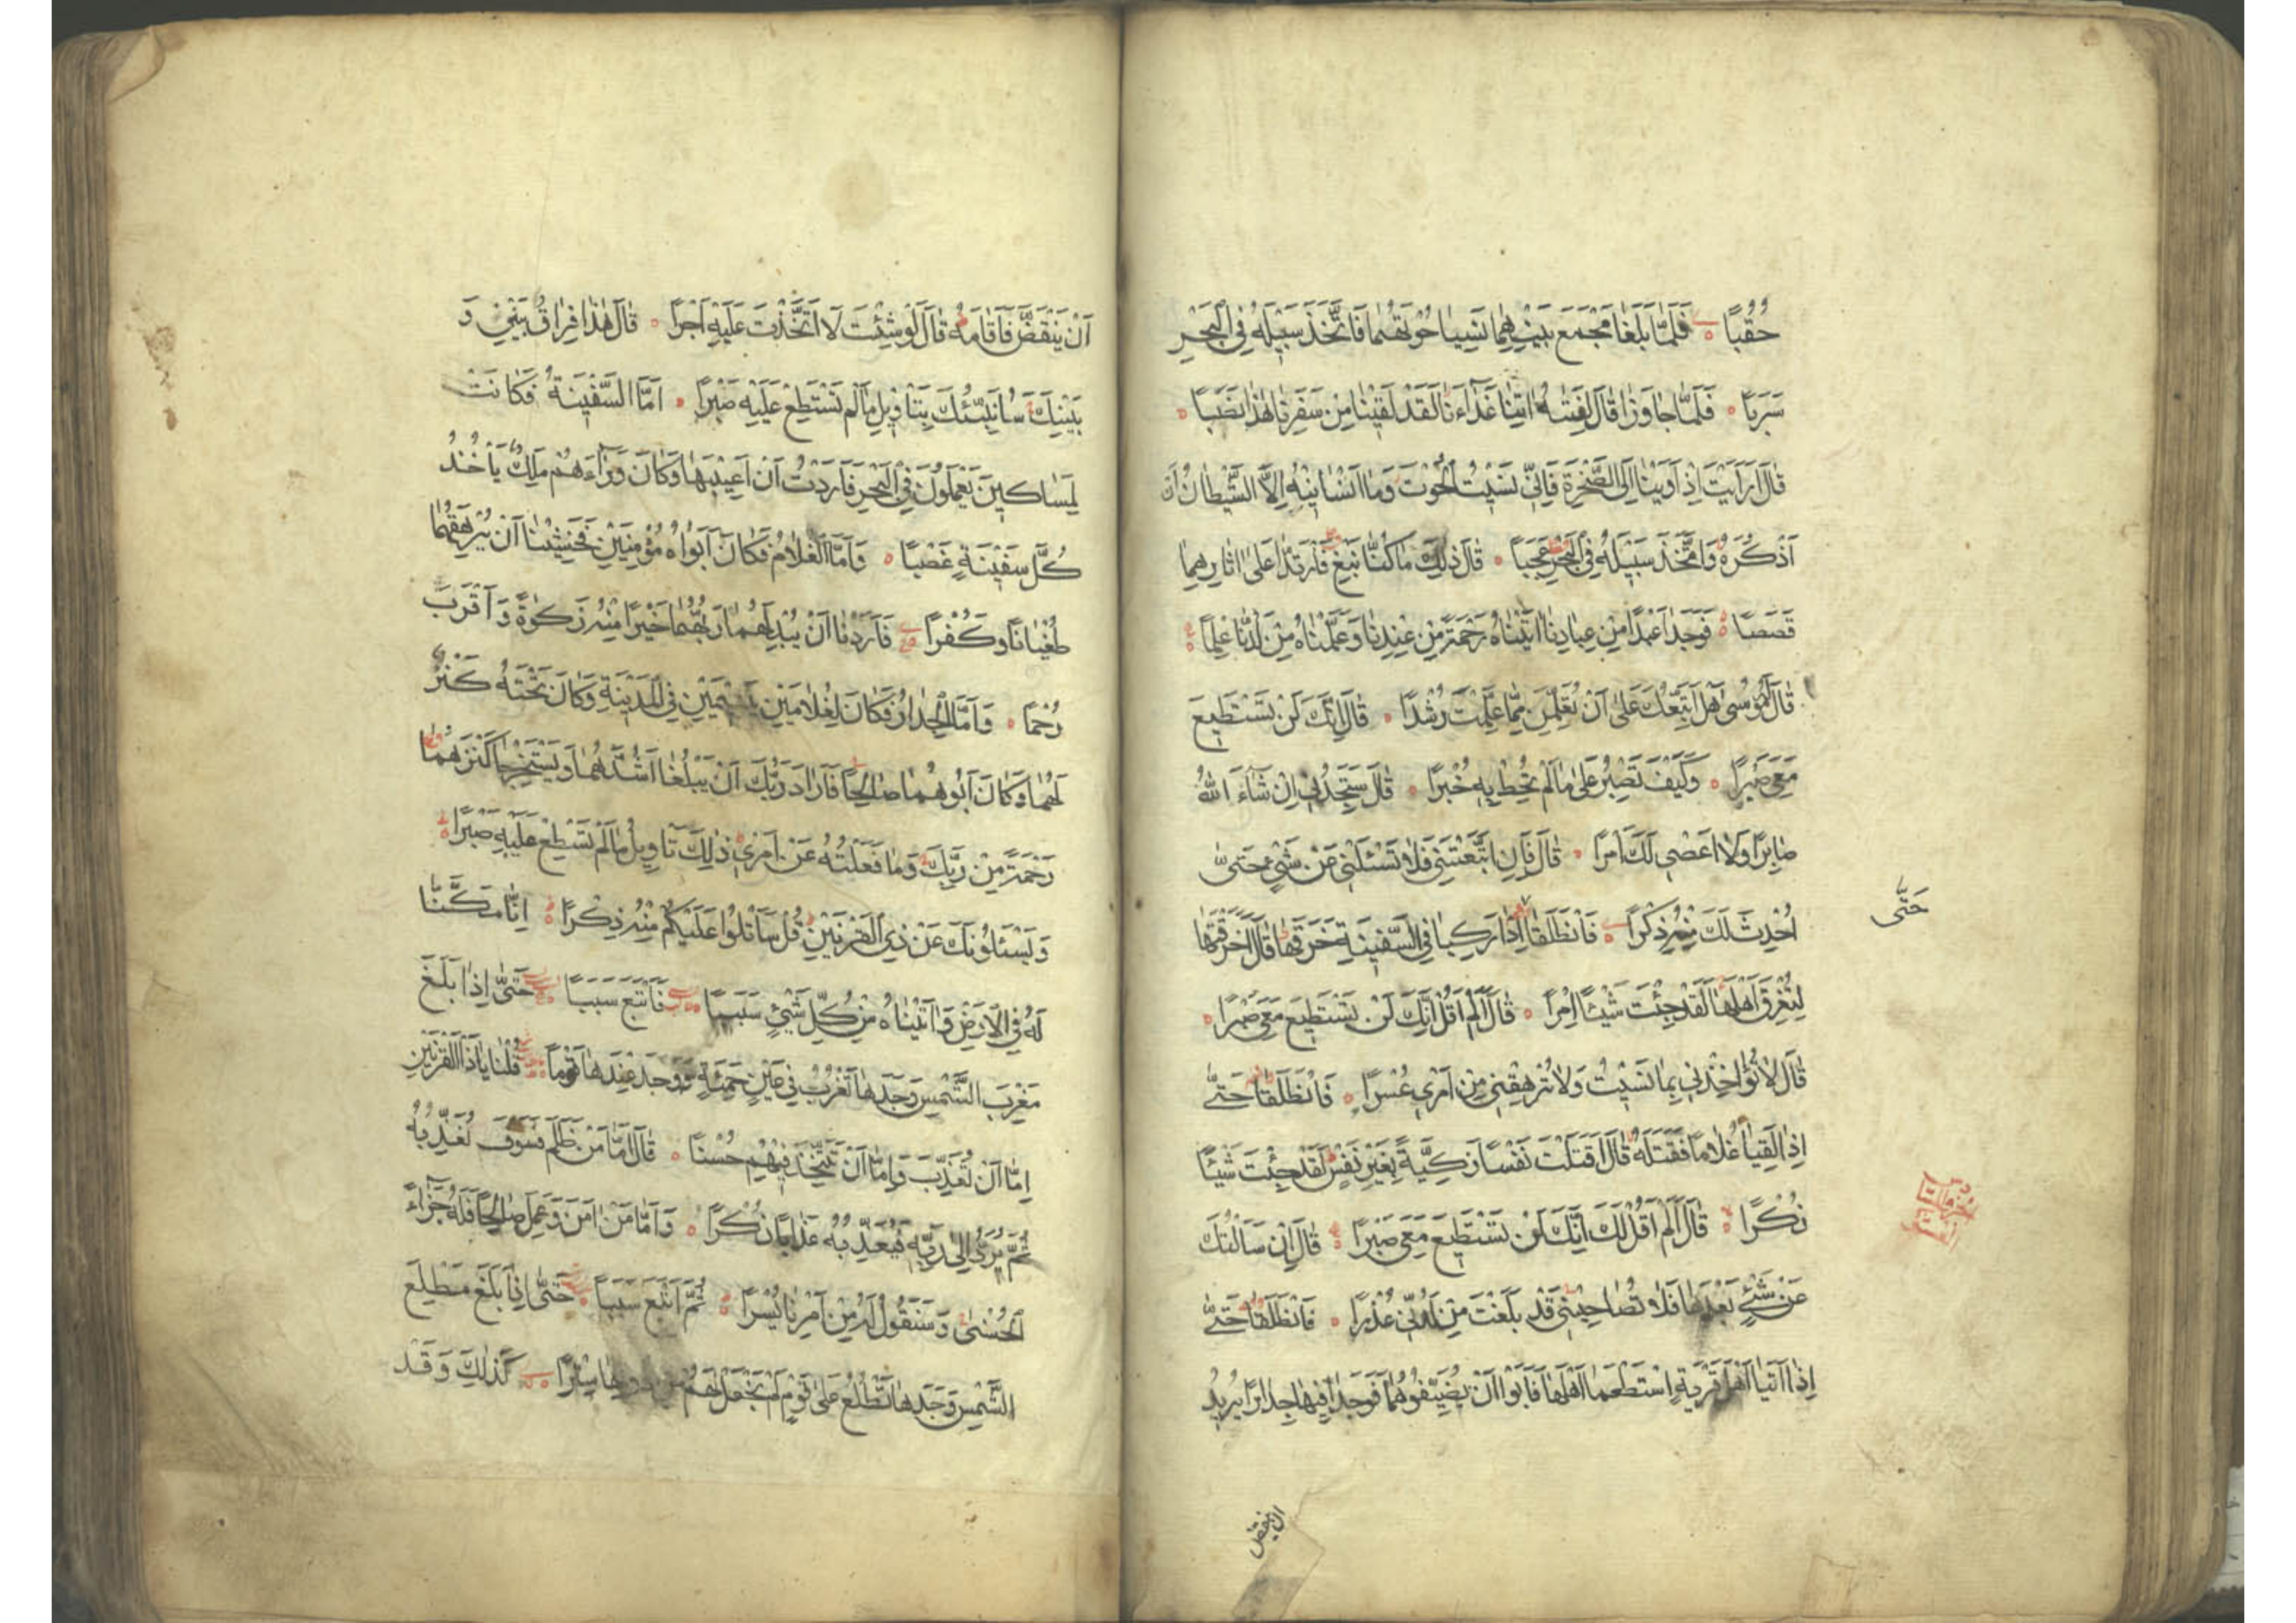 حُقُبًا فَلَمَّا بَلَغَا مَجْمَعَ بَيْنِهِمَا نَسِيَا حُوتَهُمَا فَاتَّخَذَ سَبِيلَهُ فِي الْبَحْرِ
سَرَبًا فَلَمَّا جَاوَزَا قَالَ لِفَتٰيهُ اٰتِنَا غَدَاءَنَا لَقَدْ لَقِينَا مِنْ سَفَرِنَا هٰذَا نَصَبًا
قَالَ اَرَاَيْتَ اِذْ اَوَيْنَا اِلَى الصَّخْرَةِ فَاِنِّي نَسِيتُ الْحُوتَ وَمَا اَنْسَانِيهُ اِلَّا الشَّيْطَانُ اَنْ
اَذْكُرَهُ وَاتَّخَذَ سَبِيلَهُ فِي الْبَحْرِ عَجَبًا قَالَ ذٰلِكَ مَا كُنَّا نَبْغِ فَارْتَدَّا عَلٰى اٰثَارِهِمَا
قَصَصًا فَوَجَدَا عَبْدًا مِنْ عِبَادِنَا اٰتَيْنَاهُ رَحْمَةً مِنْ عِنْدِنَا وَعَلَّمْنَاهُ مِنْ لَدُنَّا عِلْمًا
قَالَ لَهُ مُوسٰى هَلْ اَتَّبِعُكَ عَلٰى اَنْ تُعَلِّمَنِ مِمَّا عُلِّمْتَ رُشْدًا قَالَ اِنَّكَ لَنْ تَسْتَطِيعَ
مَعِيَ صَبْرًا وَكَيْفَ تَصْبِرُ عَلٰى مَا لَمْ تُحِطْ بِهِ خُبْرًا قَالَ سَتَجِدُنِي اِنْ شَاءَ اللّٰهُ
صَابِرًا وَلَا اَعْصِي لَكَ اَمْرًا قَالَ فَاِنِ اتَّبَعْتَنِي فَلَا تَسْئَلْنِي عَنْ شَيْءٍ حَتّٰى
حَتّٰى
اُحْدِثَ لَكَ مِنْهُ ذِكْرًا فَانْطَلَقَا اِذَا رَكِبَا فِي السَّفِينَةِ خَرَقَهَا قَالَ اَخَرَقْتَهَا
لِتُغْرِقَ اَهْلَهَا لَقَدْ جِئْتَ شَيْئًا اِمْرًا قَالَ اَلَمْ اَقُلْ اِنَّكَ لَنْ تَسْتَطِيعَ مَعِيَ صَبْرًا
قَالَ لَا تُؤَاخِذْنِي بِمَا نَسِيتُ وَلَا تُرْهِقْنِي مِنْ اَمْرِي عُسْرًا فَانْطَلَقَا حَتّٰى
اِذَا لَقِيَا غُلَامًا فَقَتَلَهُ قَالَ اَقَتَلْتَ نَفْسًا زَكِيَّةً بِغَيْرِ نَفْسٍ لَقَدْ جِئْتَ شَيْئًا
نُكْرًا قَالَ اَلَمْ اَقُلْ لَكَ اِنَّكَ لَنْ تَسْتَطِيعَ مَعِيَ صَبْرًا قَالَ اِنْ سَاَلْتُكَ
عَنْ شَيْءٍ بَعْدَهَا فَلَا تُصَاحِبْنِي قَدْ بَلَغْتَ مِنْ لَدُنِّي عُذْرًا فَانْطَلَقَا حَتّٰى
اِذَا اَتَيَا اَهْلَ قَرْيَةٍ اسْتَطْعَمَا اَهْلَهَا فَاَبَوْا اَنْ يُضَيِّفُوهُمَا فَوَجَدَا فِيهَا جِدَارًا يُرِيدُ
ان ينقض
اَنْ يَنْقَضَّ فَاَقَامَهُ قَالَ لَوْ شِئْتَ لَاتَّخَذْتَ عَلَيْهِ اَجْرًا قَالَ هٰذَا فِرَاقُ بَيْنِي وَ
بَيْنِكَ سَاُنَبِّئُكَ بِتَاْوِيلِ مَا لَمْ تَسْتَطِعْ عَلَيْهِ صَبْرًا اَمَّا السَّفِينَةُ فَكَانَتْ
لِمَسَاكِينَ يَعْمَلُونَ فِي الْبَحْرِ فَاَرَدْتُ اَنْ اَعِيبَهَا وَكَانَ وَرَاءَهُمْ مَلِكٌ يَاْخُذُ
كُلَّ سَفِينَةٍ غَصْبًا وَاَمَّا الْغُلَامُ فَكَانَ اَبَوَاهُ مُؤْمِنَيْنِ فَخَشِينَا اَنْ يُرْهِقَهُمَا
طُغْيَانًا وَكُفْرًا فَاَرَدْنَا اَنْ يُبْدِلَهُمَا رَبُّهُمَا خَيْرًا مِنْهُ زَكٰوةً وَاَقْرَبَ
رُحْمًا وَاَمَّا الْجِدَارُ فَكَانَ لِغُلَامَيْنِ يَتِيمَيْنِ فِي الْمَدِينَةِ وَكَانَ تَحْتَهُ كَنْزٌ
لَهُمَا وَكَانَ اَبُوهُمَا صَالِحًا فَاَرَادَ رَبُّكَ اَنْ يَبْلُغَا اَشُدَّهُمَا وَيَسْتَخْرِجَا كَنْزَهُمَا
رَحْمَةً مِنْ رَبِّكَ وَمَا فَعَلْتُهُ عَنْ اَمْرِي ذٰلِكَ تَاْوِيلُ مَا لَمْ تَسْطِعْ عَلَيْهِ صَبْرًا
وَيَسْئَلُونَكَ عَنْ ذِي الْقَرْنَيْنِ قُلْ سَاَتْلُوا عَلَيْكُمْ مِنْهُ ذِكْرًا اِنَّا مَكَّنَّا
لَهُ فِي الْاَرْضِ وَاٰتَيْنَاهُ مِنْ كُلِّ شَيْءٍ سَبَبًا فَاَتْبَعَ سَبَبًا حَتّٰى اِذَا بَلَغَ
مَغْرِبَ الشَّمْسِ وَجَدَهَا تَغْرُبُ فِي عَيْنٍ حَمِئَةٍ وَوَجَدَ عِنْدَهَا قَوْمًا قُلْنَا يَا ذَا الْقَرْنَيْنِ
اِمَّا اَنْ تُعَذِّبَ وَاِمَّا اَنْ تَتَّخِذَ فِيهِمْ حُسْنًا قَالَ اَمَّا مَنْ ظَلَمَ فَسَوْفَ نُعَذِّبُهُ
ثُمَّ يُرَدُّ اِلٰى رَبِّهِ فَيُعَذِّبُهُ عَذَابًا نُكْرًا وَاَمَّا مَنْ اٰمَنَ وَعَمِلَ صَالِحًا فَلَهُ جَزَاءً
الْحُسْنٰى وَسَنَقُولُ لَهُ مِنْ اَمْرِنَا يُسْرًا ثُمَّ اَتْبَعَ سَبَبًا حَتّٰى اِذَا بَلَغَ مَطْلِعَ
الشَّمْسِ وَجَدَهَا تَطْلُعُ عَلٰى قَوْمٍ لَمْ نَجْعَلْ لَهُمْ مِنْ دُونِهَا سِتْرًا كَذٰلِكَ وَقَدْ